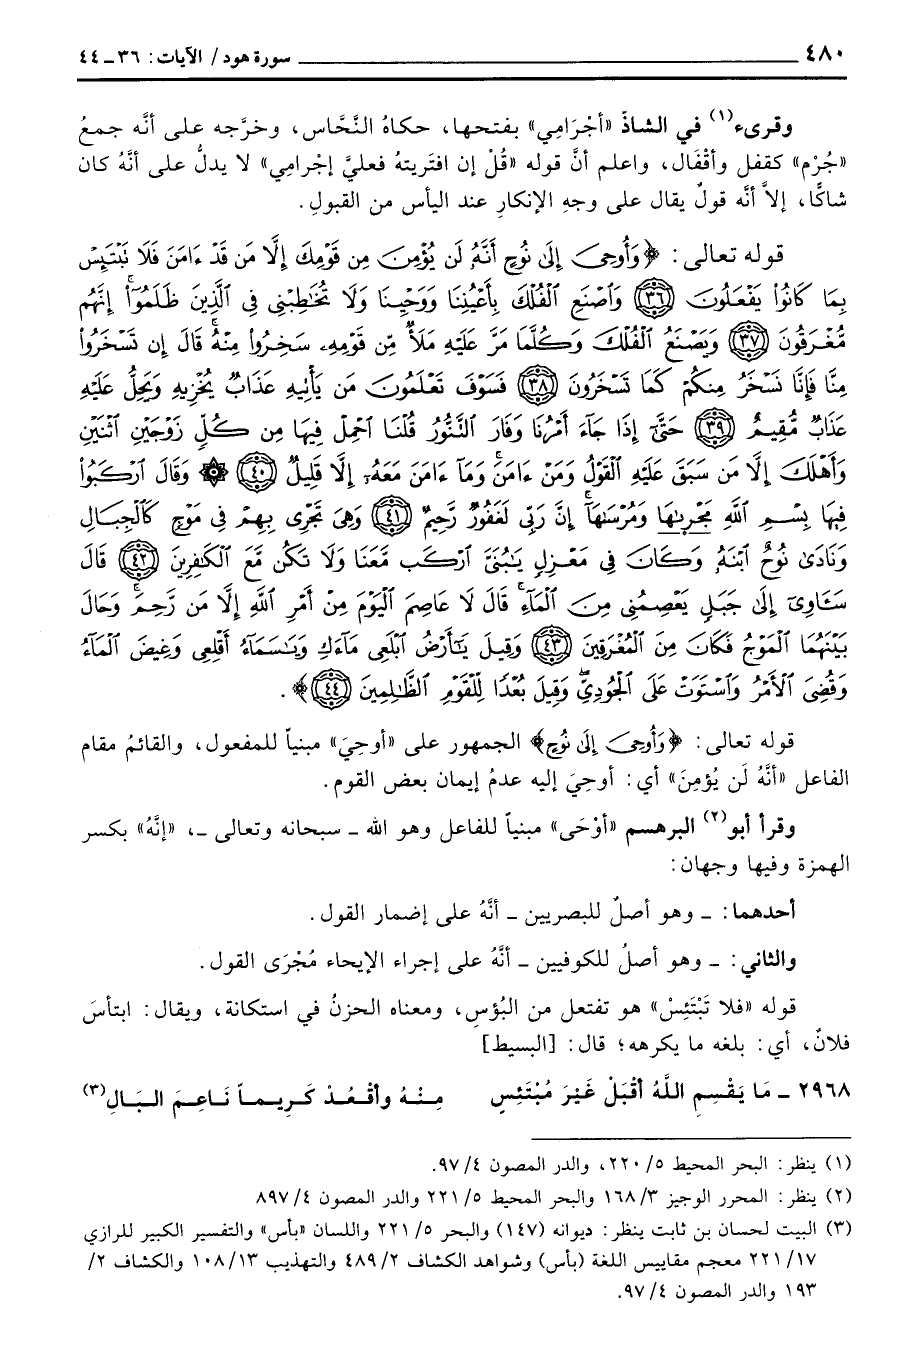 ٤٨٠ ــــــــــــــــــــــــــــــــــــــــــــــــــــــــــــ سورة هود/ الآيات: ٣٦ ـ ٤٤
وقرىء(١) في الشاذّ «أجْرَامِي» بفتحها، حكاهُ النَّحَّاس، وخرَّجه على أنَّه جمعُ
«جُرْم» كقفل وأقْفَال، واعلم أنَّ قوله «قُلْ إن افتريتهُ فعليَّ إجْرامِي» لا يدلُّ على أنَّهُ كان
شاكًّا، إلاَّ أنَّه قولٌ يقال على وجهِ الإنكارِ عند اليأس من القبولِ.
قوله تعالى: ﴿وَأُوحِيَ إِلَىٰ نُوحٍ أَنَّهُۥ لَن يُؤْمِنَ مِن قَوْمِكَ إِلَّا مَن قَدْ ءَامَنَ فَلَا نَبْتَئِسْ
بِمَا كَانُوا۟ يَفْعَلُونَ ٣٦ وَٱصْنَعِ ٱلْفُلْكَ بِأَعْيُنِنَا وَوَحْيِنَا وَلَا تُخَٰطِبْنِى فِى ٱلَّذِينَ ظَلَمُوٓا۟ۚ إِنَّهُم
مُّغْرَقُونَ ٣٧ وَيَصْنَعُ ٱلْفُلْكَ وَكُلَّمَا مَرَّ عَلَيْهِ مَلَأٌ مِّن قَوْمِهِۦ سَخِرُوا۟ مِنْهُۚ قَالَ إِن تَسْخَرُوا۟
مِنَّا فَإِنَّا نَسْخَرُ مِنكُمْ كَمَا تَسْخَرُونَ ٣٨ فَسَوْفَ تَعْلَمُونَ مَن يَأْتِيهِ عَذَابٌ يُخْزِيهِ وَيَحِلُّ عَلَيْهِ
عَذَابٌ مُّقِيمٌ ٣٩ حَتَّىٰٓ إِذَا جَآءَ أَمْرُنَا وَفَارَ ٱلتَّنُّورُ قُلْنَا ٱحْمِلْ فِيهَا مِن كُلٍّ زَوْجَيْنِ ٱثْنَيْنِ
وَأَهْلَكَ إِلَّا مَن سَبَقَ عَلَيْهِ ٱلْقَوْلُ وَمَنْ ءَامَنَۚ وَمَآ ءَامَنَ مَعَهُۥٓ إِلَّا قَلِيلٌ ٤٠ ۞ وَقَالَ ٱرْكَبُوا۟
فِيهَا بِسْمِ ٱللَّهِ مَجْر۪ىٰهَا وَمُرْسَىٰهَآۚ إِنَّ رَبِّى لَغَفُورٌ رَّحِيمٌ ٤١ وَهِىَ تَجْرِى بِهِمْ فِى مَوْجٍ كَٱلْجِبَالِ
وَنَادَىٰ نُوحٌ ٱبْنَهُۥ وَكَانَ فِى مَعْزِلٍ يَٰبُنَىَّ ٱرْكَب مَّعَنَا وَلَا تَكُن مَّعَ ٱلْكَٰفِرِينَ ٤٢ قَالَ
سَـَٔاوِىٓ إِلَىٰ جَبَلٍ يَعْصِمُنِى مِنَ ٱلْمَآءِۚ قَالَ لَا عَاصِمَ ٱلْيَوْمَ مِنْ أَمْرِ ٱللَّهِ إِلَّا مَن رَّحِمَۚ وَحَالَ
بَيْنَهُمَا ٱلْمَوْجُ فَكَانَ مِنَ ٱلْمُغْرَقِينَ ٤٣ وَقِيلَ يَٰٓأَرْضُ ٱبْلَعِى مَآءَكِ وَيَٰسَمَآءُ أَقْلِعِى وَغِيضَ ٱلْمَآءُ
وَقُضِىَ ٱلْأَمْرُ وَٱسْتَوَتْ عَلَى ٱلْجُودِىِّۖ وَقِيلَ بُعْدًا لِّلْقَوْمِ ٱلظَّٰلِمِينَ ٤٤﴾.
قوله تعالى: ﴿وَأُوحِيَ إِلَىٰ نُوحٍ﴾ الجمهور على «أوحِيَ» مبنياً للمفعول، والقائمُ مقام
الفاعل «أنَّهُ لَن يُؤمِنَ» أي: أوحِيَ إليه عدمُ إيمان بعض القوم.
وقرأ أبو(٢) البرهسم «أوْحَى» مبنياً للفاعل وهو الله ـ سبحانه وتعالى ـ، «إنَّهُ» بكسر
الهمزة وفيها وجهان:
أحدهما: ـ وهو أصلٌ للبصريين ـ أنَّهُ على إضمار القول.
والثاني: ـ وهو أصلُ للكوفيين ـ أنَّهُ على إجراء الإيحاء مُجْرَى القول.
قوله «فلا تَبْتَئِسْ» هو تفتعل من البُؤسِ، ومعناه الحزنُ في استكانة، ويقال: ابتأسَ
فلانٌ، أي: بلغه ما يكرهه؛ قال: [البسيط]
٢٩٦٨ ـ مَا يَقْسِمِ اللَّهُ أقْبَلْ غَيْرَ مُبْتَئِسِ    مِنْهُ وأقْعُدْ كَرِيماً نَاعِمَ البَالِ(٣)
(١) ينظر: البحر المحيط ٥/ ٢٢٠، والدر المصون ٤/ ٩٧.
(٢) ينظر: المحرر الوجيز ٣/ ١٦٨ والبحر المحيط ٥/ ٢٢١ والدر المصون ٤/ ٨٩٧
(٣) البيت لحسان بن ثابت ينظر: ديوانه (١٤٧) والبحر ٥/ ٢٢١ واللسان «بأس» والتفسير الكبير للرازي
١٧/ ٢٢١ معجم مقاييس اللغة (بأس) وشواهد الكشاف ٢/ ٤٨٩ والتهذيب ١٣/ ١٠٨ والكشاف ٢/
١٩٣ والدر المصون ٤/ ٩٧.